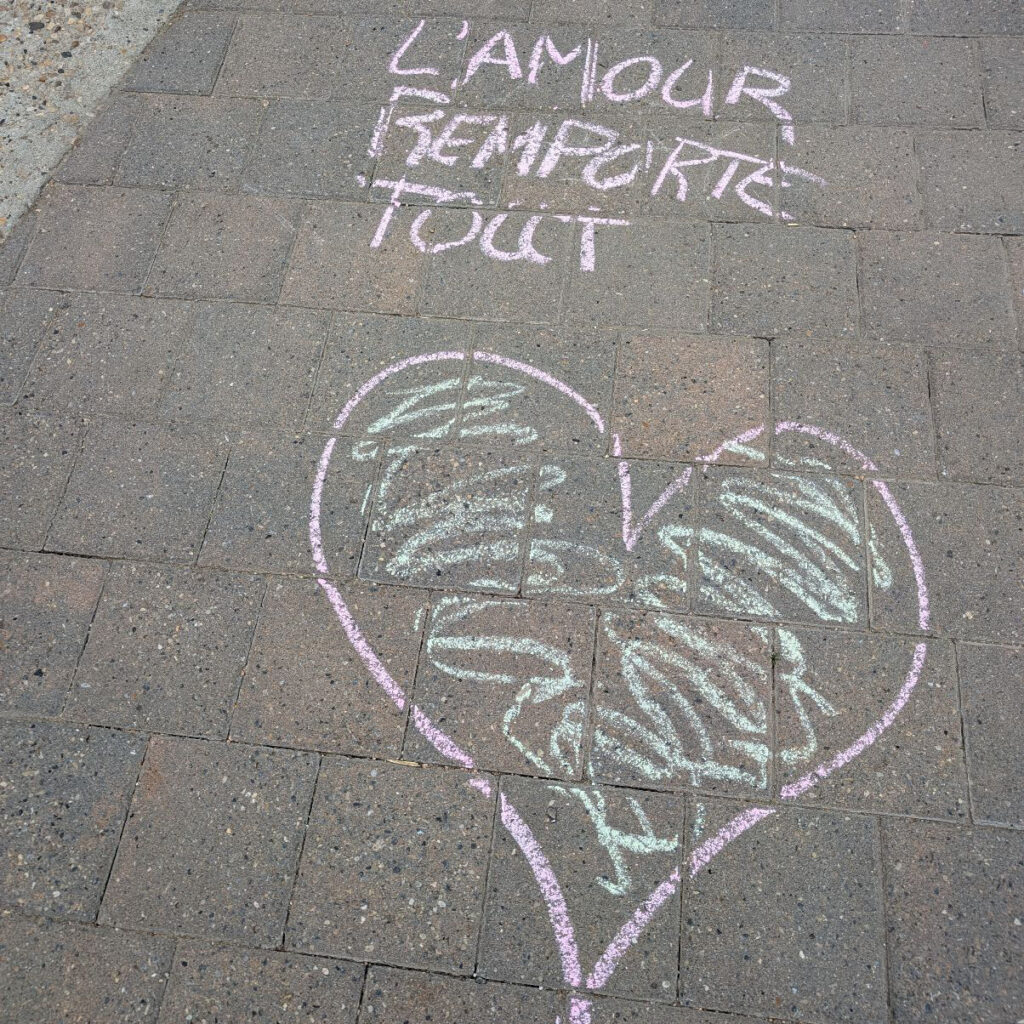 L'AMOUR
REMPORTE
TOUT